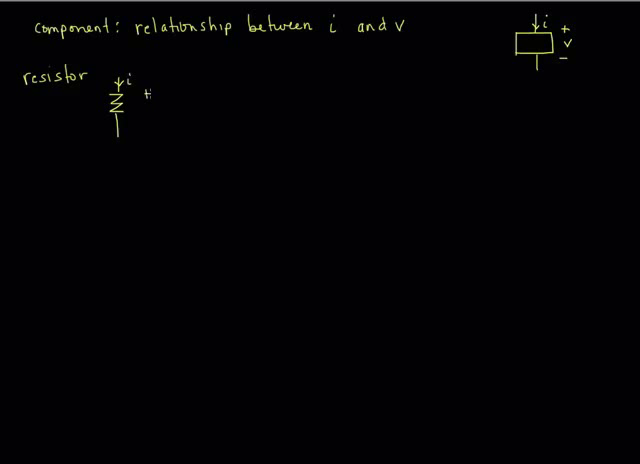 component: relationship between i and v
i
+
v
-
resistor
i
+